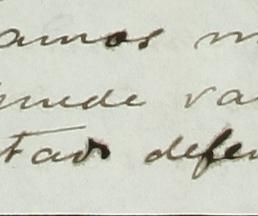 amos m
uede va
tado defen